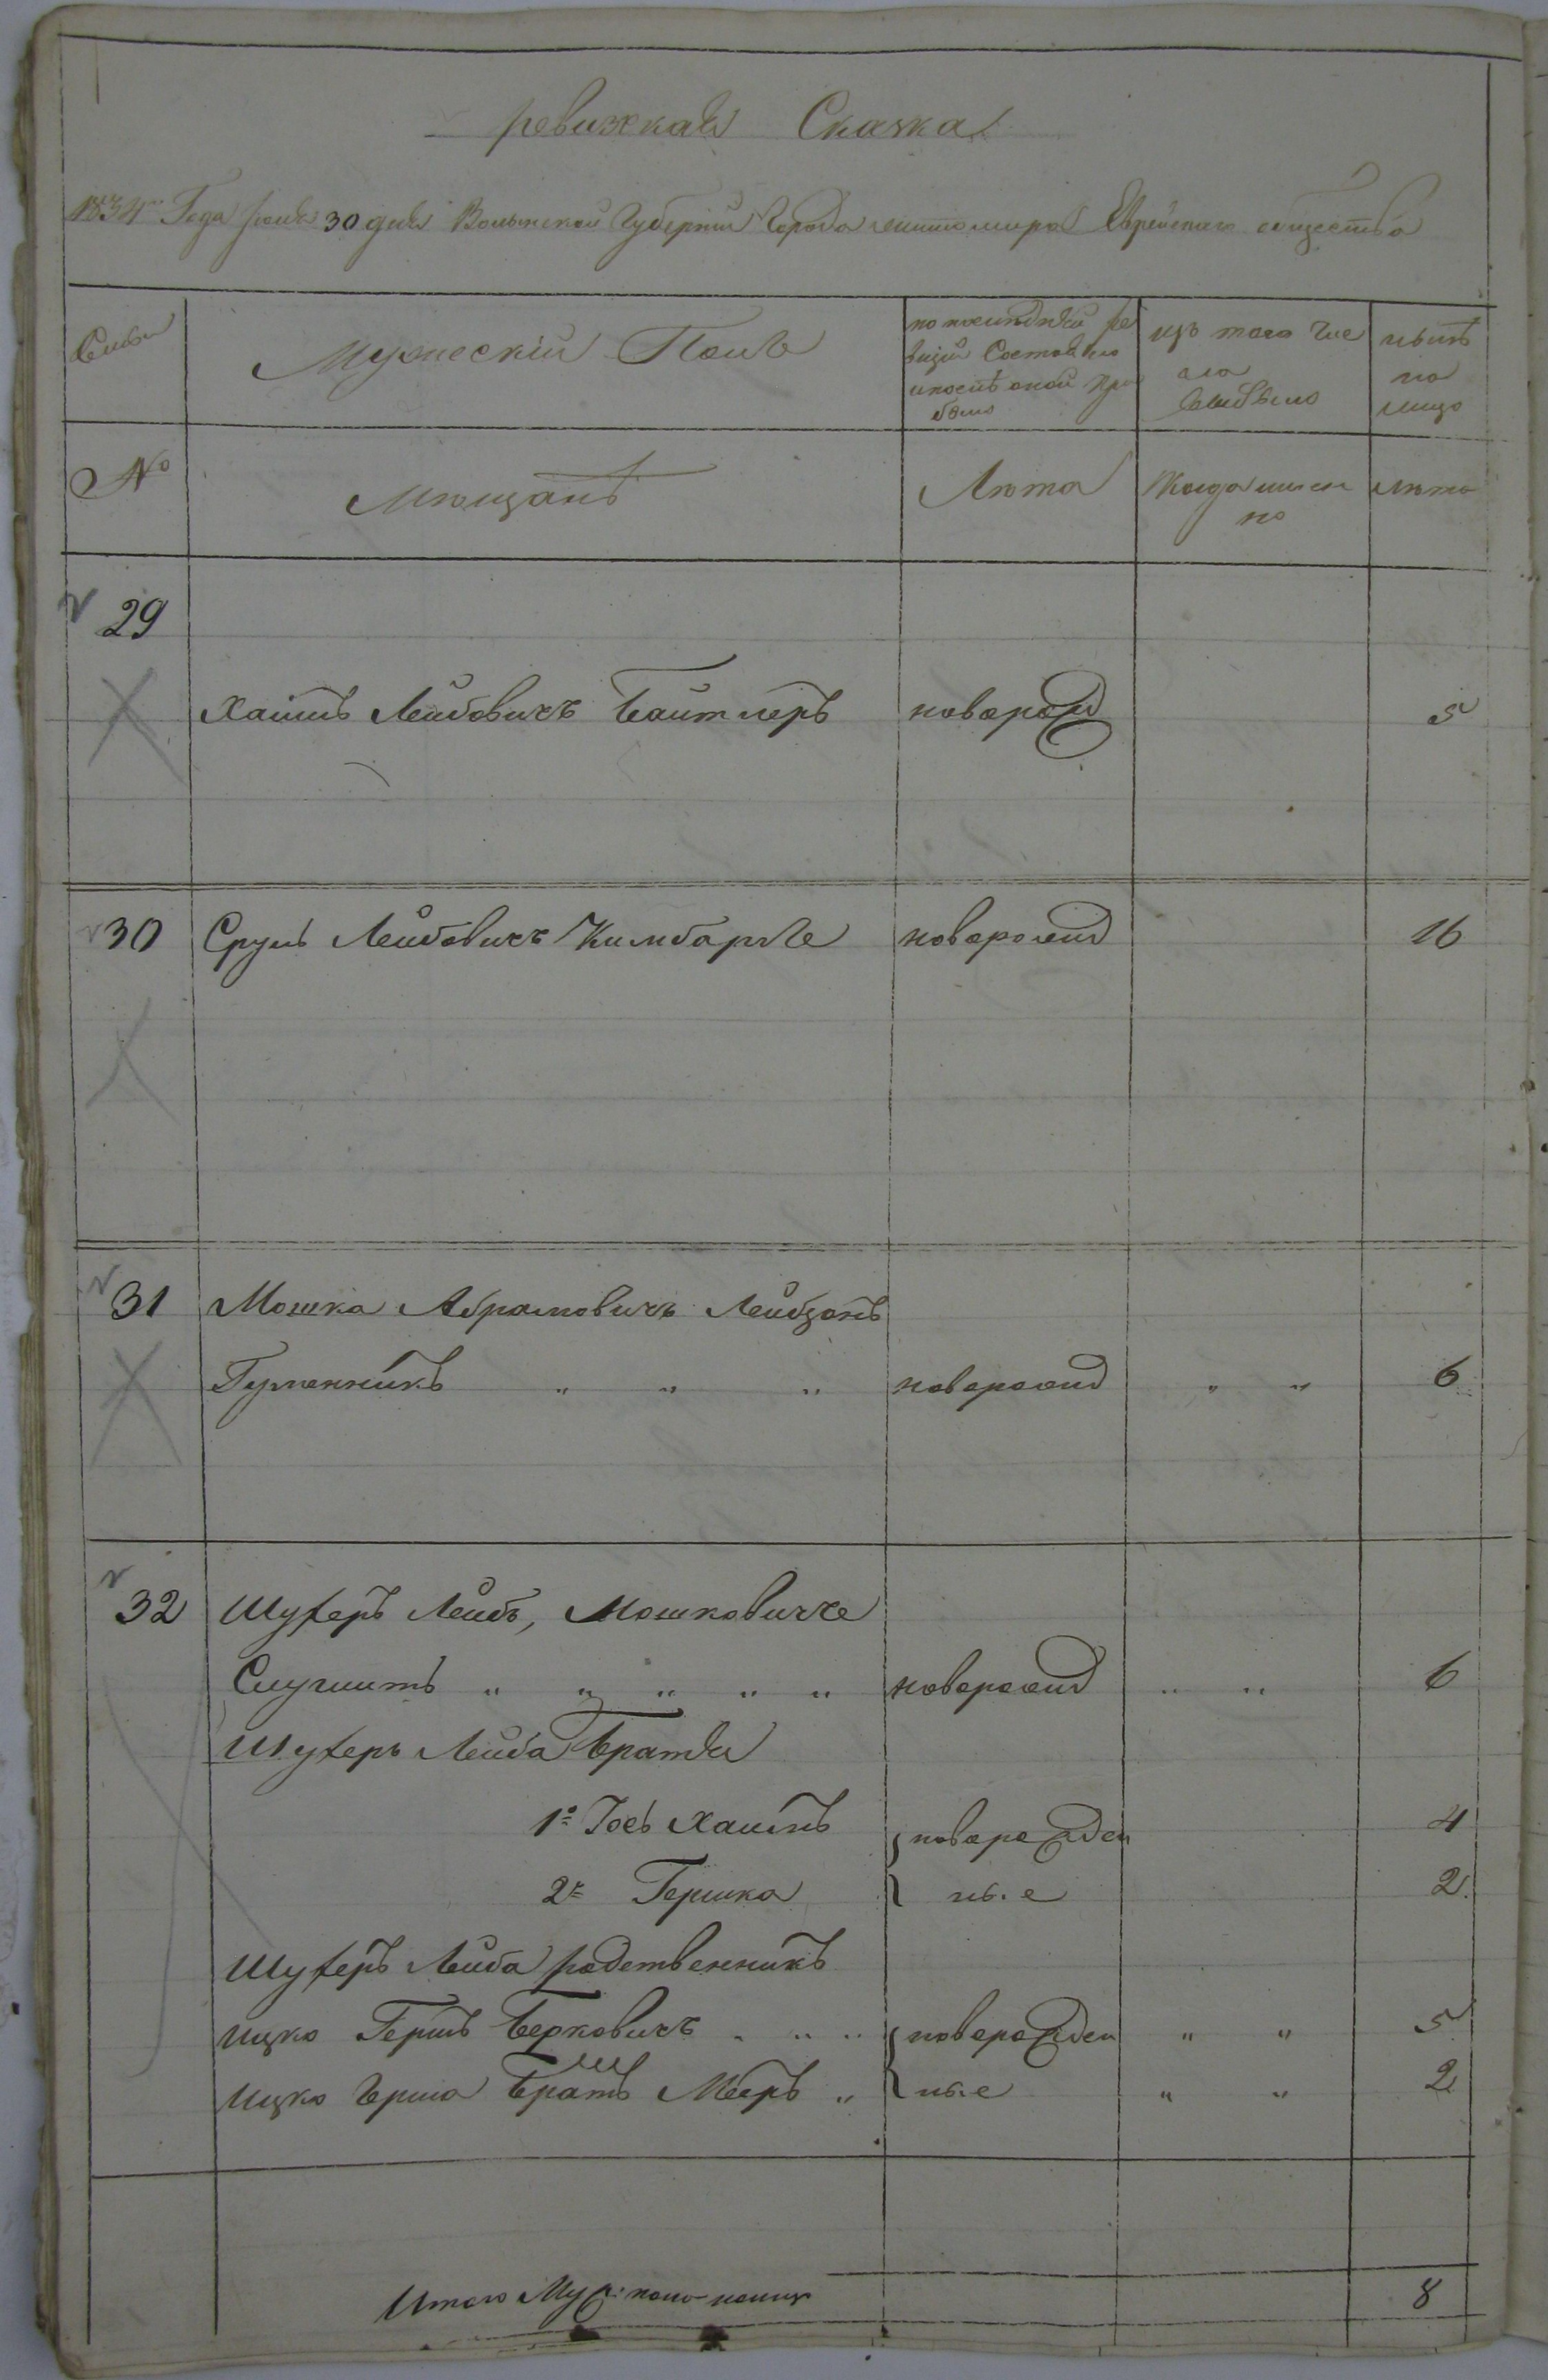 ревижкая Сказка
1834го Года июня 30 дня Волынской Губернии Города житомира Еврейскаго общества
Семьи
Мужескій Полъ
по последней ре
визіи Состояло
и после оной при
было
изъ того Чис
ла
выбыло
ныне
на
лицо
№
Мещанъ
Лета
Когда имен
но
лета
29
Хаимъ Лейбовичъ Байтлеръ новорожд 5
30 Сруль Лейбовичъ Кимбарге новорожд 16
31 Мошка Абрамовичъ Лейбзонъ
Гуменникъ " " " новорожд " " 6
32 Шухеръ Лейбъ, Мошковиче
Слушитъ " " " " " новорожд " " 6
Шухеръ Лейба братья
1е Іось Хаимъ новорожден 4
2е Гершко ны.е 2.
Шухеръ Лейба родственникъ
ицко Гершъ Берковичъ " " " новорожден " " 5
Ицко Герша братъ Мееръ " ны.е " " 2
Итого Муж: пола на лицо 8